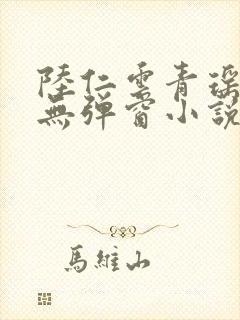 陸仁雲青瑶
無彈窗小説
馬維山